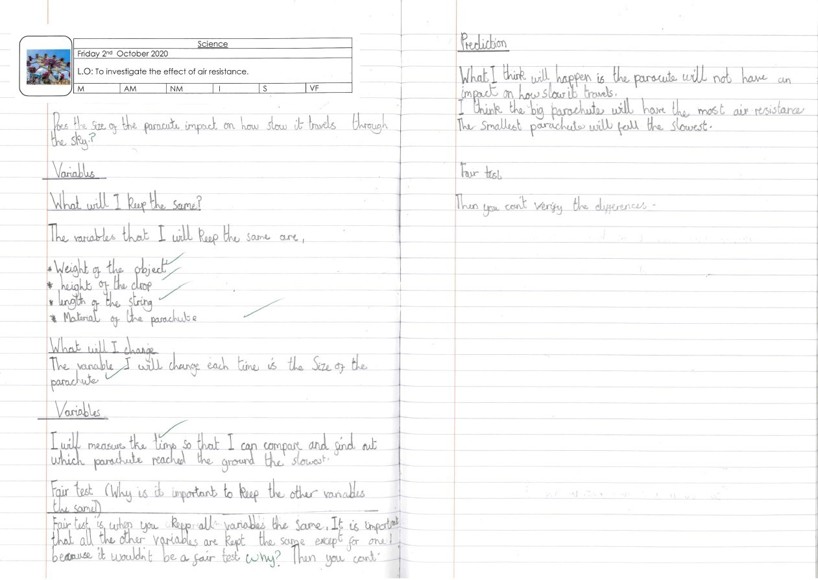 Science
Friday 2nd October 2020
L.O: To investigate the effect of air resistance.
M AM NM I S VF
Does the size of the paracute impact on how slow it travels through
the sky?
Variables
What will I keep the same?
The variables that I will keep the same are,
* Weight of the object
* height of the drop
* length of the string
* Material of the parachute
What will I change
The variable I will change each time is the size of the
parachute
Variables
I will measure the time so that I can compare and find out
which parachute reached the ground the slowest.
Fair test (Why is it important to keep the other variables
the same?)
Fair test is when you keep all variables the same. It is important
that all the other variables are kept the same except for one!
because it wouldn't be a fair test why? Then you cant
Prediction
What I think will happen is the paracute will not have an
impact on how slow it travels.
I think the big parachute will have the most air resistance
The smallest parachute will fall the slowest.
Fair test
Then you can't verify the differences.